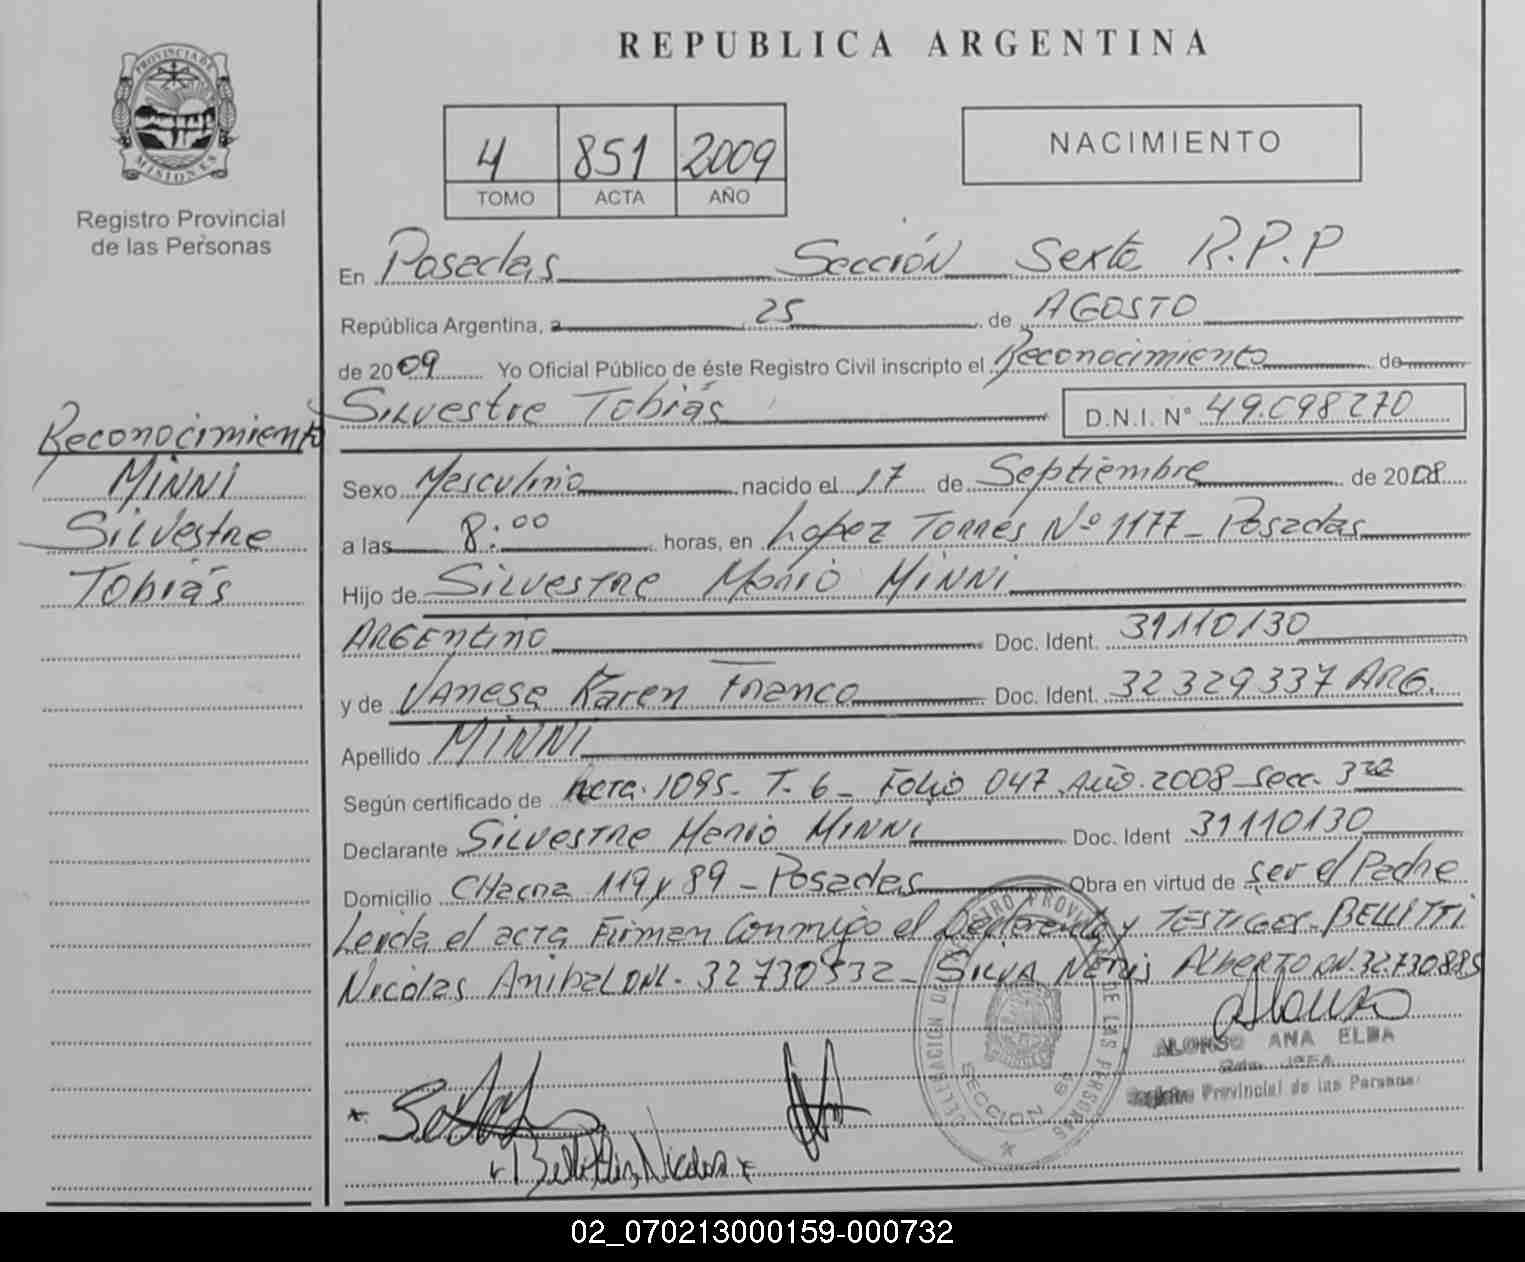 REPUBLICA ARGENTINA
PROVINCIA DE
MISIONES
Registro Provincial
de las Personas
4 851 2009
TOMO ACTA AÑO
NACIMIENTO
En Posadas Sección Sexta R.P.P
República Argentina, a 25 de AGOSTO
de 2009 Yo Oficial Público de éste Registro Civil inscripto el Reconocimiento de
Silvestre Tobiás D.N.I. Nº 49.098270
Reconocimiento
MINNI
Silvestre
Tobiás
Sexo Masculino nacido el 17 de Septiembre de 2008
a las 8:00 horas, en Lopez Torres Nº 1177 - Posadas
Hijo de Silvestre Mario MINNI
ARGENtino Doc. Ident. 31110130
y de VANESA Karen Franco Doc. Ident. 32329337 ARG.
Apellido MINNI
Según certificado de Acta. 1095 - T. 6 - Folio 047 Año. 2008 - Secc. 3ra
Declarante Silvestre Mario MINNI Doc. Ident 31110130
Domicilio CHacra 119 y 89 - Posadas Obra en virtud de ser el Padre
Leida el acta Firman Conmigo el Declarante y TESTIGOS - BELLITTI
Nicolas Anibal DNI - 32730532 - SILVA Alberto DNI. 32.730.885
DELEGACION DE REGISTRO PROVINCIAL DE LAS PERSONAS
SECCION 6ª
ALONSO ANA ELBA
Registro Provincial de las Personas
Nicolas
02_070213000159-000732